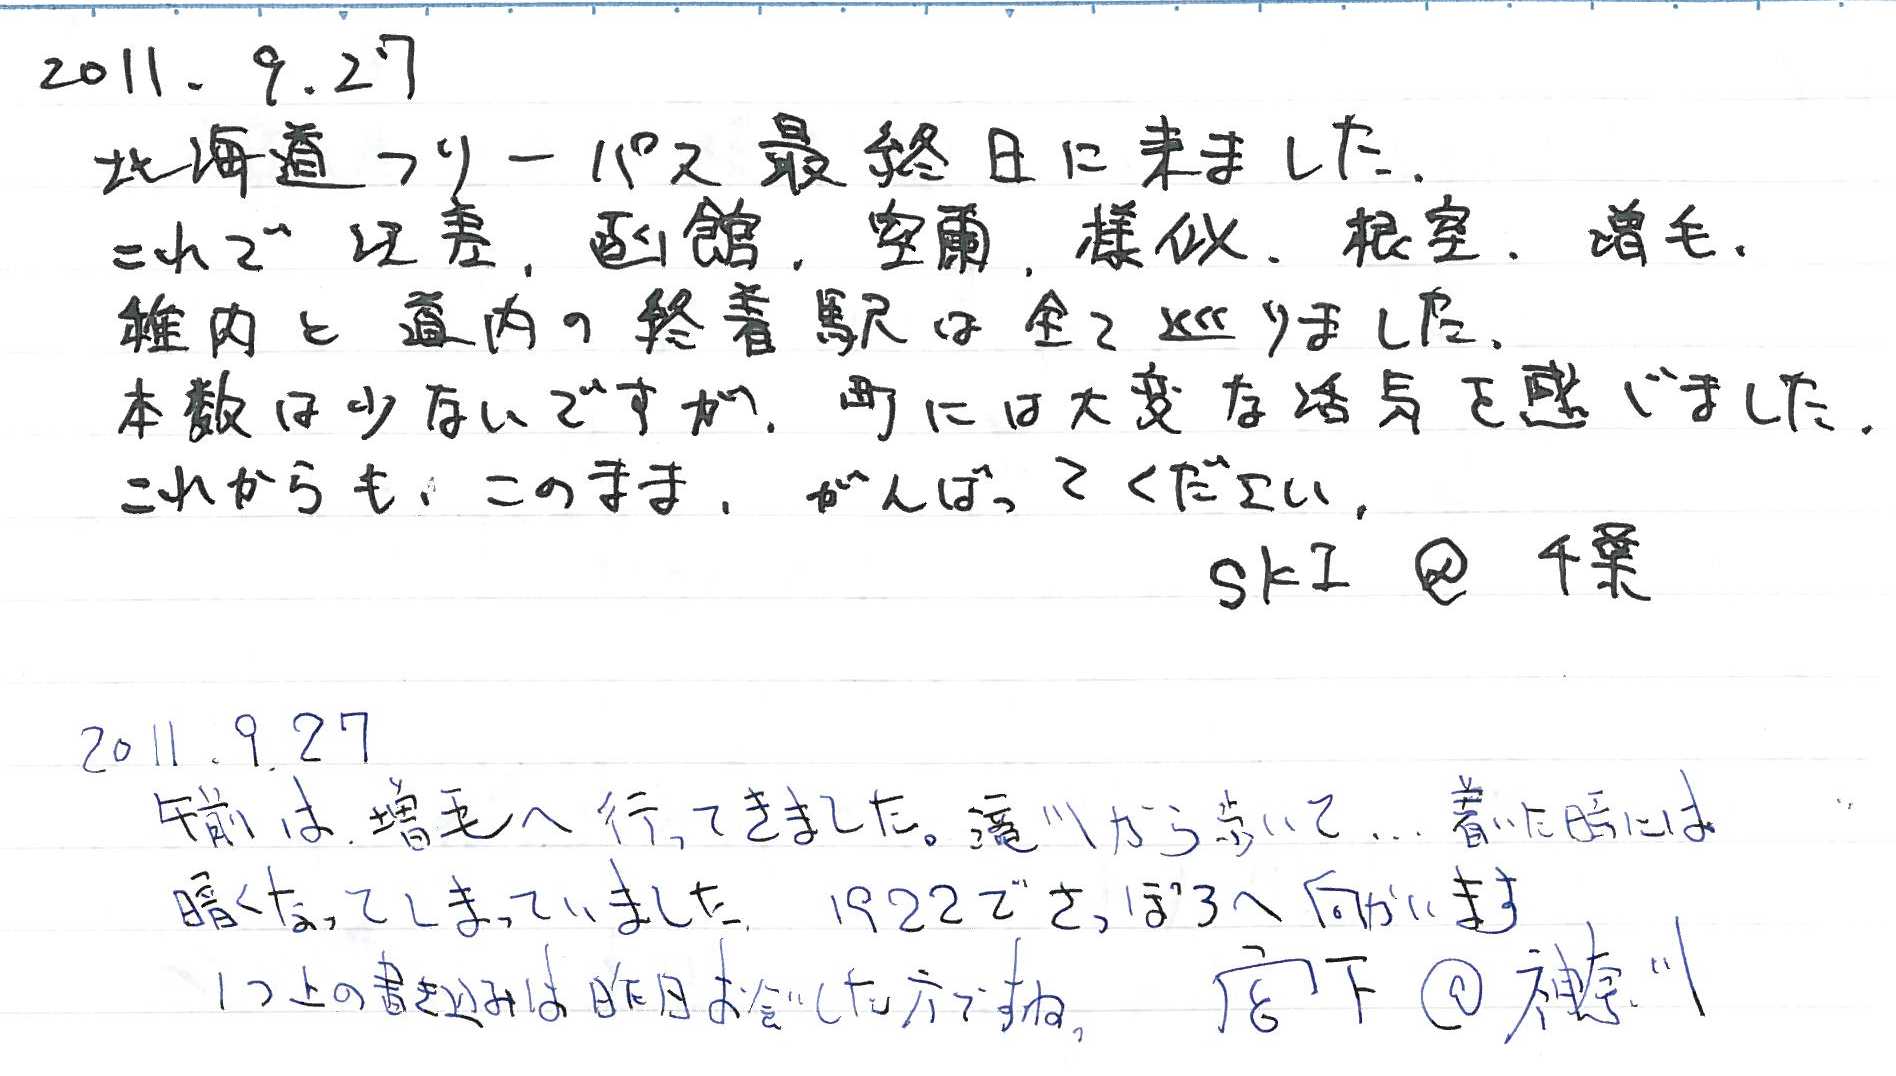 2011.9.27
北海道フリーパス最終日に来ました.
これで江差,函館,室蘭,様似.根室.増毛.
稚内と道内の終着駅は全て巡りました.
本数は少ないですが.町には大変な活気を感じました.
これからも、このまま.がんばってください.
SKI @ 千葉
2011.9.27
午前は.増毛へ行ってきました。滝川から歩いて...着いた時には
暗くなってしまっていました. 1922でさっぽろへ向かいます
1つ上の書き込みは昨日お会いした方ですね。 宮下@神奈川